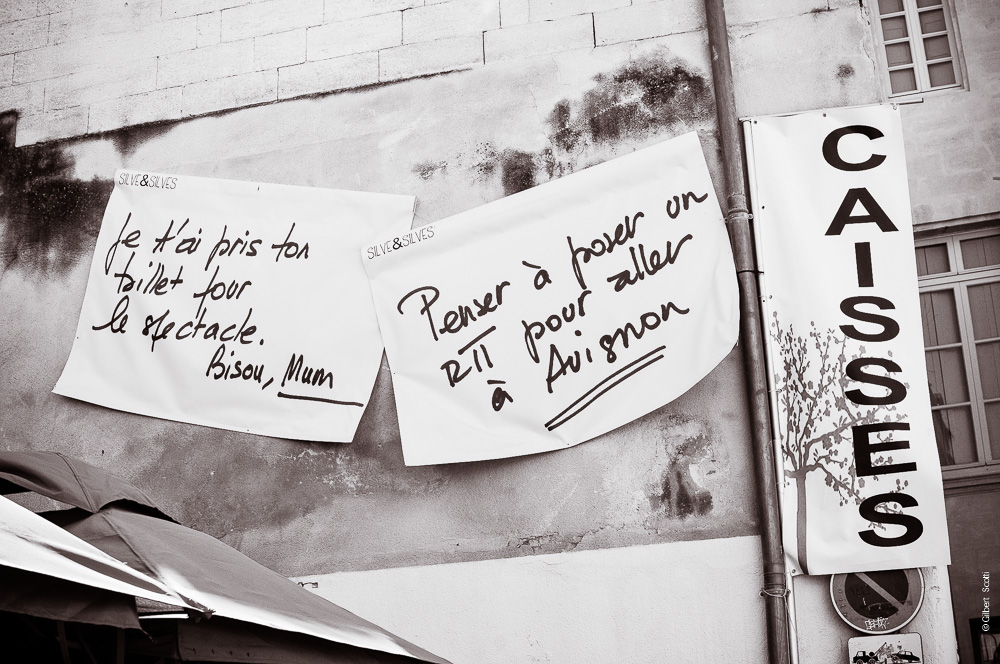 SILVE&SILVES
Je t'ai pris ton
billet pour
le spectacle.
Bisou, Mum
SILVE&SILVES
Penser à poser un
RTT pour aller
à Avignon
CAISSES
©Gilbert Scotti